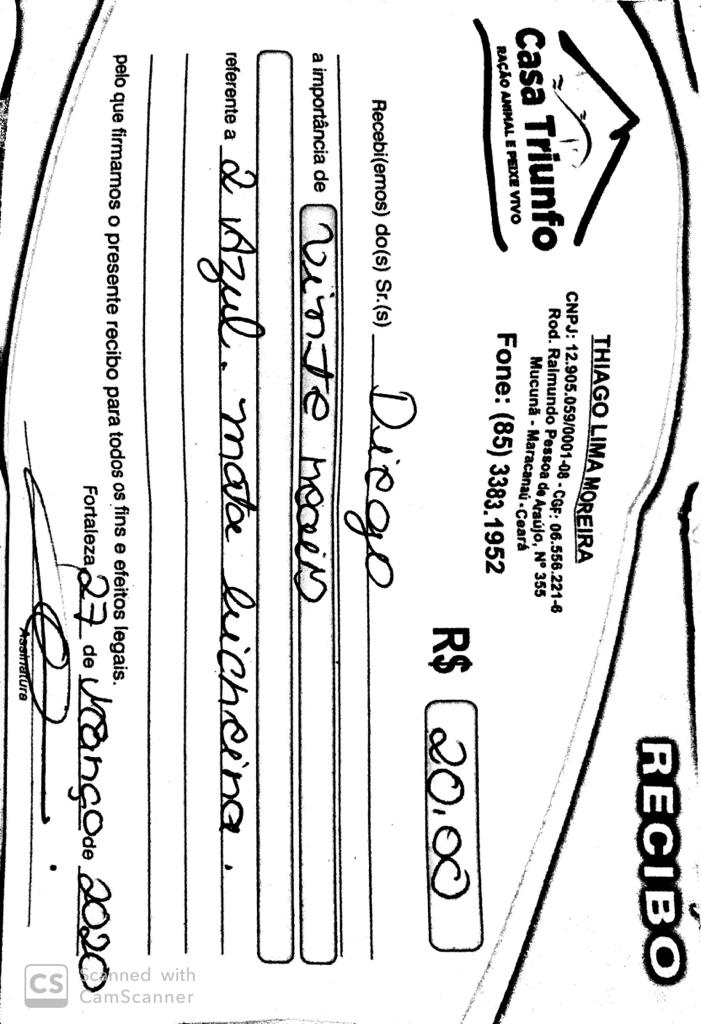 RECIBO
Casa Triunfo
RAÇÃO ANIMAL E PEIXE VIVO
THIAGO LIMA MOREIRA
CNPJ: 12.905.059/0001-08 - CGF: 06.556.221-6
Rod. Raimundo Pessoa de Araújo, N° 355
Mucunã - Maracanaú - Ceará
Fone: (85) 3383.1952
R$ 20.00
Recebi(emos) do(s) Sr.(s) Diogo
a importância de vinte reais
referente a 2 Azul. mata bicheira.
pelo que firmamos o presente recibo para todos os fins e efeitos legais.
Fortaleza 27 de Março de 2020
Assinatura
CS Scanned with
CamScanner